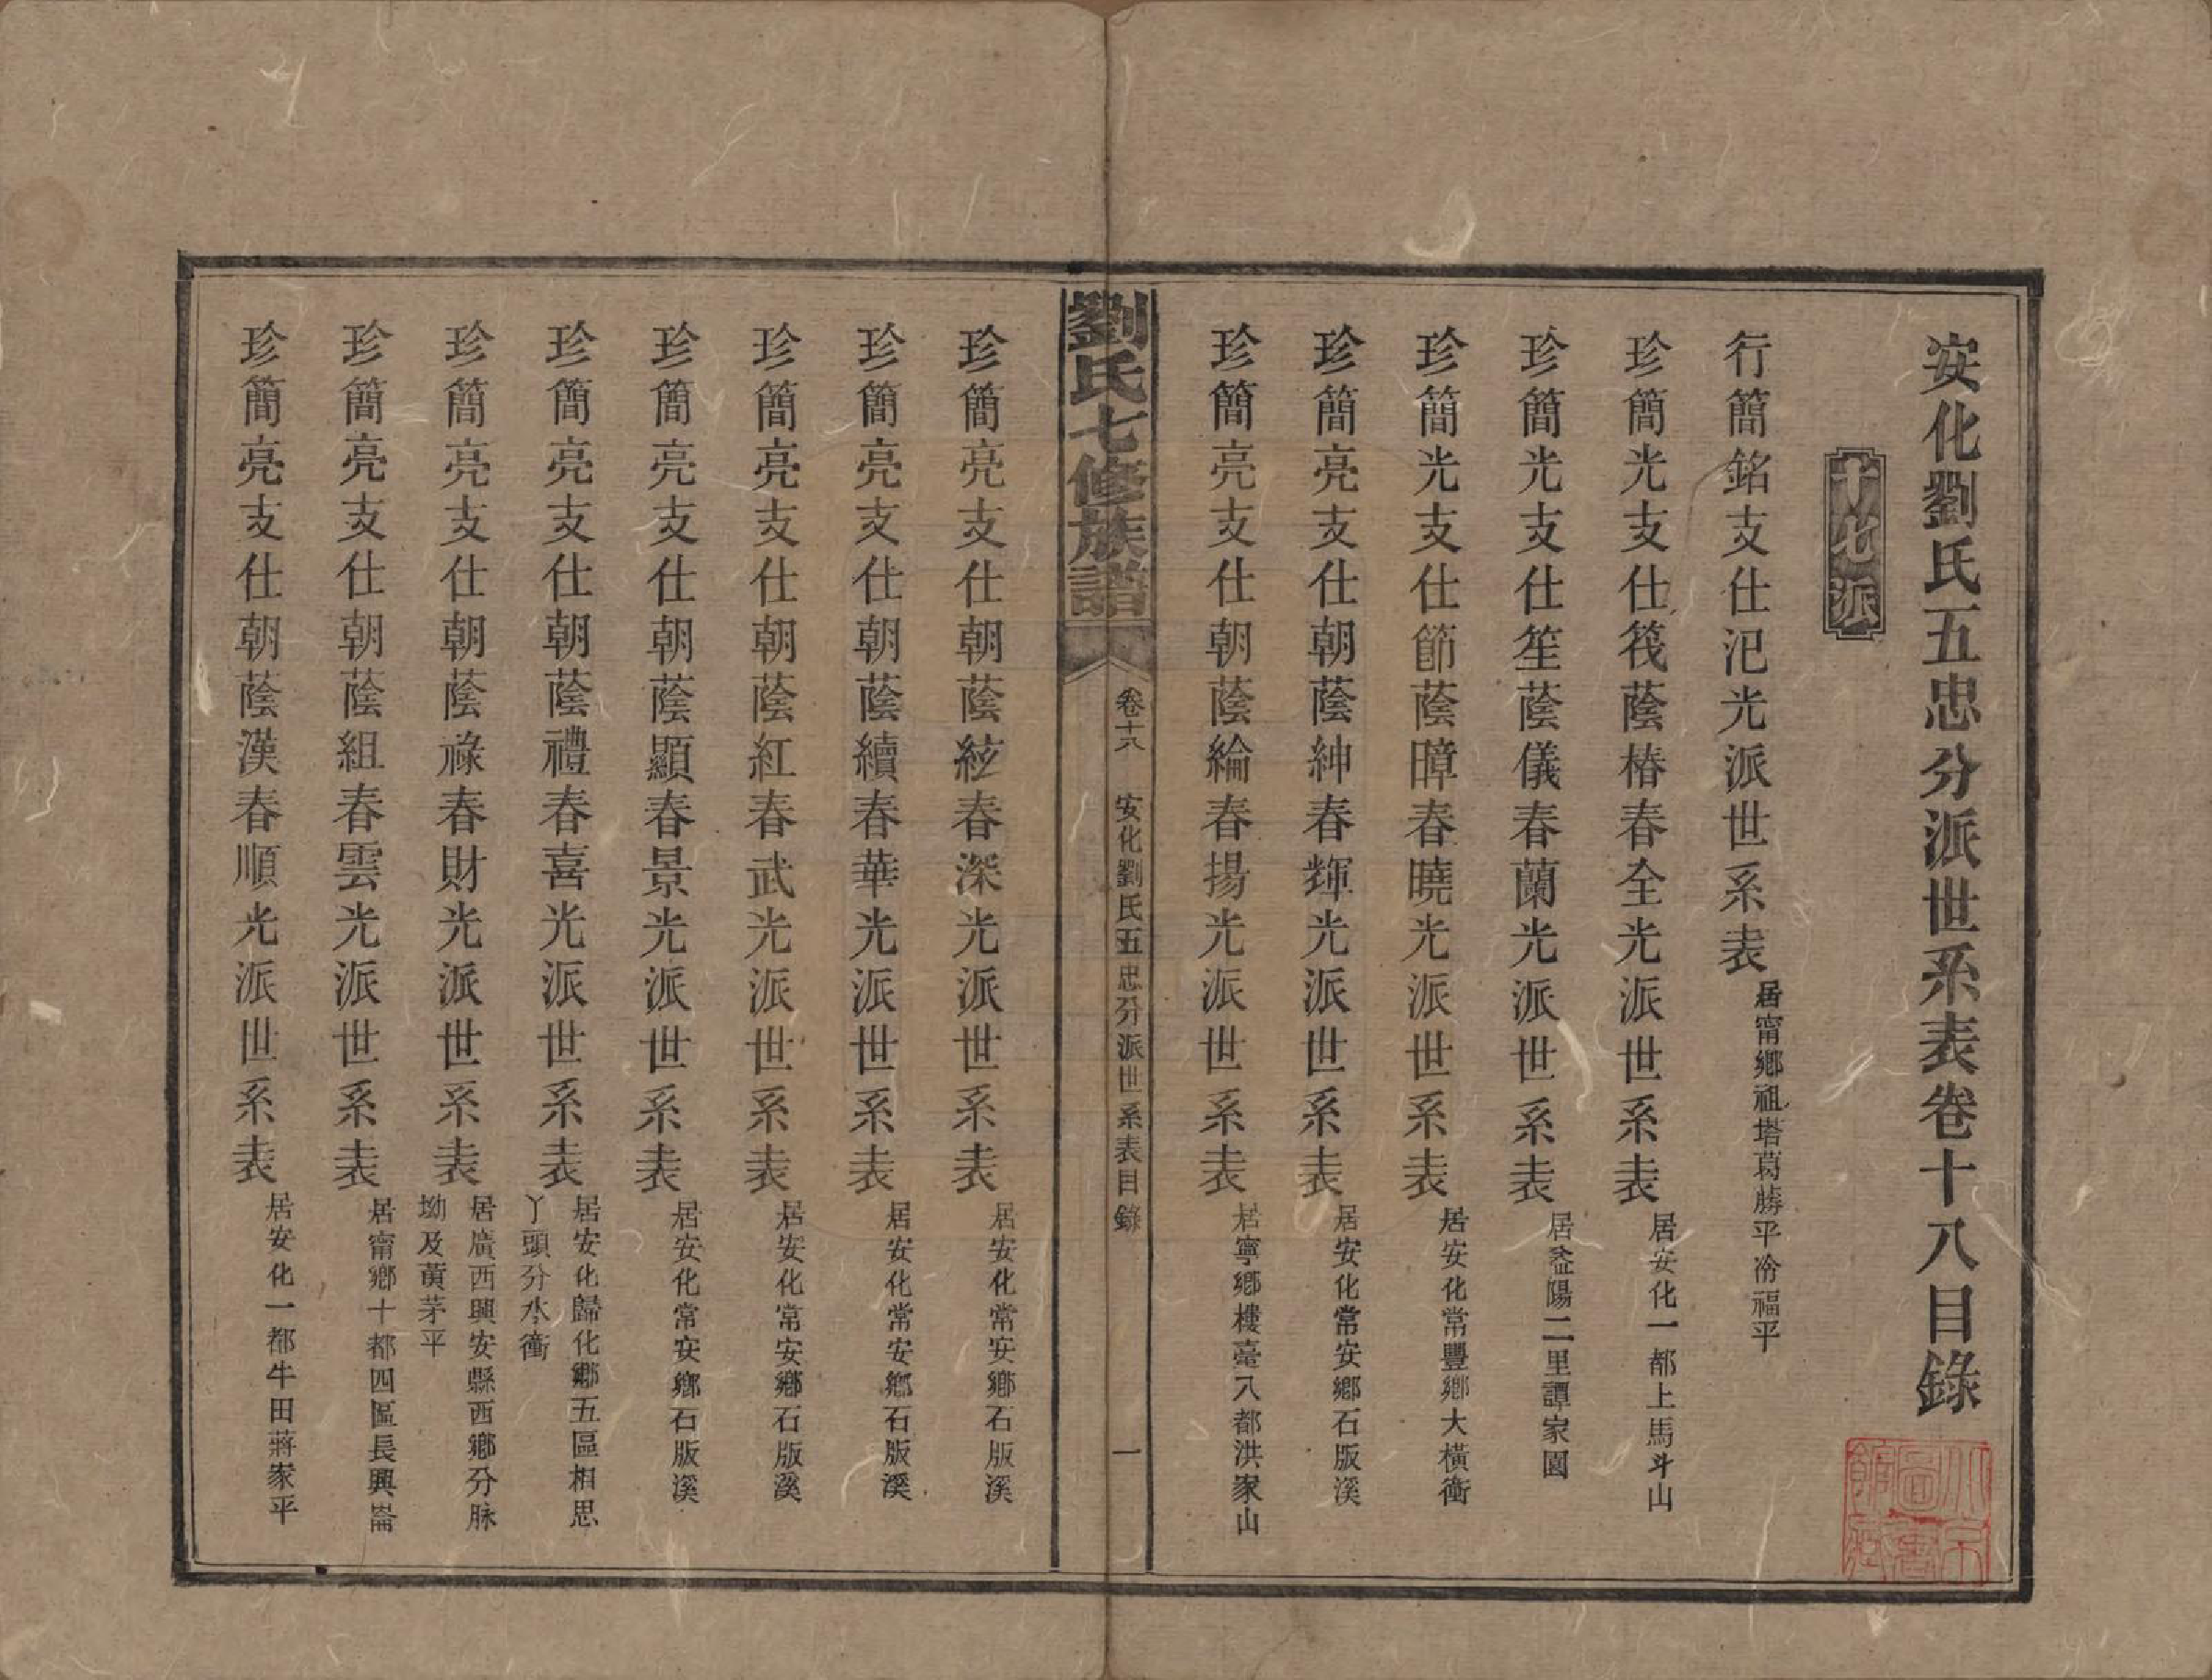 安化劉氏五忠分派世系表卷十八目錄
十七派
行簡銘支仕汜光派世系表 居甯鄉祖塔葛藤平冷福平
珍簡光支仕筏蔭椿春全光派世系表 居安化一都上馬斗山
珍簡光支仕笙蔭儀春蘭光派世系表 居益陽二里譚家園
珍簡光支仕節蔭暲春曉光派世系表 居安化常豐鄉大橫衝
珍簡亮支仕朝蔭紳春輝光派世系表 居安化常安鄉石版溪
珍簡亮支仕朝蔭綸春揚光派世系表 居寧鄉樓臺八都洪家山
劉氏七修族譜 卷十八 安化劉氏五忠分派世系表目錄 一
珍簡亮支仕朝蔭絃春深光派世系表 居安化常安鄉石版溪
珍簡亮支仕朝蔭續春華光派世系表 居安化常安鄉石版溪
珍簡亮支仕朝蔭紅春武光派世系表 居安化常安鄉石版溪
珍簡亮支仕朝蔭顯春景光派世系表 居安化常安鄉石版溪
珍簡亮支仕朝蔭禮春喜光派世系表 居安化歸化鄉五區相思
丫頭分水衝
珍簡亮支仕朝蔭祿春財光派世系表 居廣西興安縣西鄉分脉
坳及黄茅平
珍簡亮支仕朝蔭組春雲光派世系表 居甯鄉十都四區長興崙
珍簡亮支仕朝蔭漢春順光派世系表 居安化一都牛田蔣家平